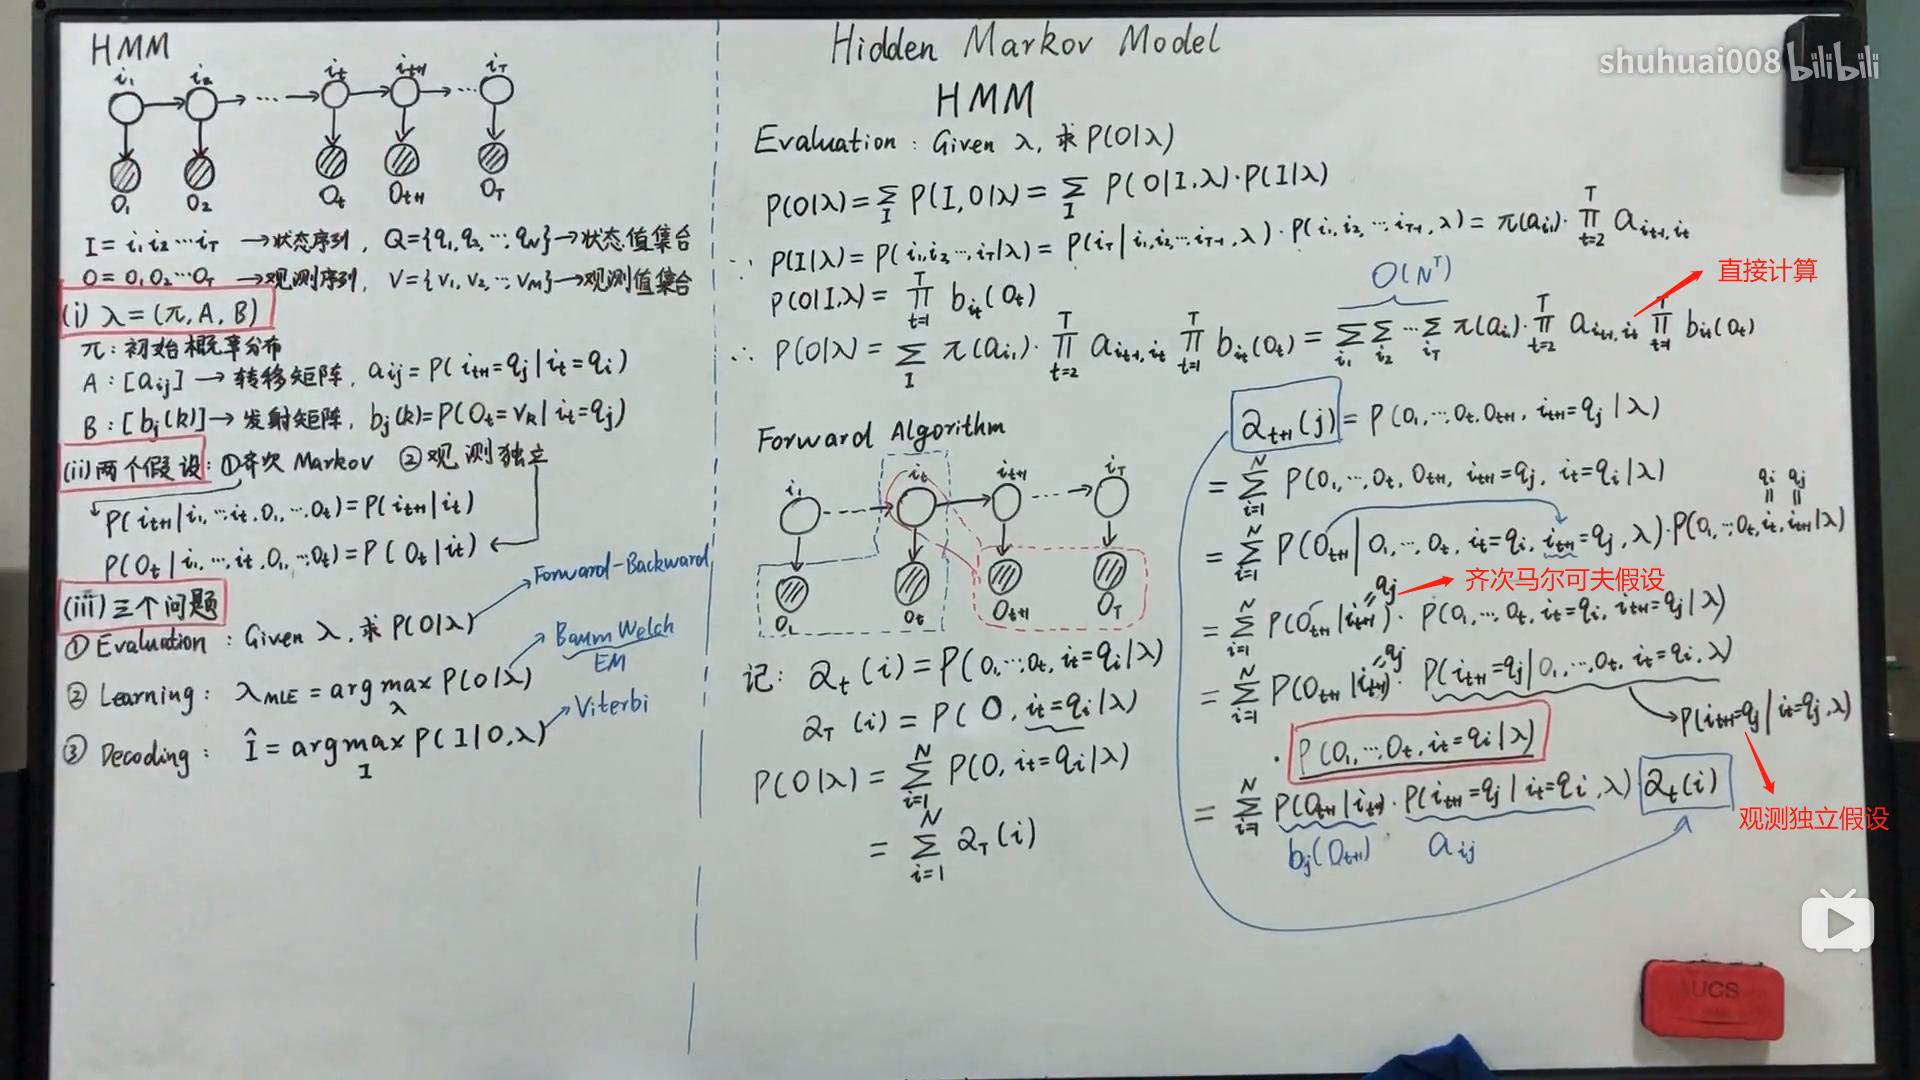 HMM
i₁ i₂ iₜ iₜ₊₁ i_T
... ...
O₁ O₂ Oₜ Oₜ₊₁ O_T
I = i₁ i₂ ⋯ i_T → 状态序列, Q = {q₁, q₂, ⋯, q_N} → 状态值集合
O = O₁ O₂ ⋯ O_T → 观测序列, V = {v₁, v₂, ⋯, v_M} → 观测值集合
(i) λ = (π, A, B)
π : 初始概率分布
A : [aᵢⱼ] → 转移矩阵, aᵢⱼ = P(iₜ₊₁ = qⱼ | iₜ = qᵢ)
B : [bⱼ(k)] → 发射矩阵, bⱼ(k) = P(Oₜ = v_k | iₜ = qⱼ)
(ii) 两个假设 : ① 齐次 Markov ② 观测独立
P(iₜ₊₁ | i₁, ⋯ iₜ, O₁, ⋯ Oₜ) = P(iₜ₊₁ | iₜ)
P(Oₜ | i₁, ⋯, iₜ, O₁, ⋯, Oₜ) = P(Oₜ | iₜ)
Forward-Backward
(iii) 三个问题
① Evaluation : Given λ, 求 P(O|λ)
Baum Welch
EM
② Learning : λ_MLE = arg max_λ P(O|λ)
Viterbi
③ Decoding : Î = arg max_I P(I|O, λ)
Hidden Markov Model
shuhuai008 bilibili
HMM
Evaluation : Given λ, 求 P(O|λ)
P(O|λ) = Σ_I P(I, O|λ) = Σ_I P(O|I, λ)·P(I|λ)
∵ P(I|λ) = P(i₁, i₂, ⋯, i_T|λ) = P(i_T | i₁, i₂, ⋯, i_T-1, λ)·P(i₁, i₂, ⋯ i_T-1, λ) = π(a_i₁)·∏_{t=2}^T a_{iₜ₋₁, iₜ}
P(O|I, λ) = ∏_{t=1}^T b_{iₜ}(Oₜ)
O(N^T)
直接计算
∴ P(O|λ) = Σ_I π(a_i₁)·∏_{t=2}^T a_{iₜ₋₁, iₜ} ∏_{t=1}^T b_{iₜ}(Oₜ) = Σ_i₁ Σ_i₂ ⋯ Σ_i_T π(a_i₁)·∏_{t=2}^T a_{iₜ₋₁, iₜ} ∏_{t=1}^T b_{iₜ}(Oₜ)
Forward Algorithm
i₁ iₜ iₜ₊₁ i_T
O₁ Oₜ Oₜ₊₁ O_T
记: αₜ(i) = P(O₁, ⋯, Oₜ, iₜ = qᵢ | λ)
α_T(i) = P(O, iₜ = qᵢ | λ)
P(O|λ) = Σ_{i=1}^N P(O, iₜ = qᵢ | λ)
= Σ_{i=1}^N α_T(i)
αₜ₊₁(j) = P(O₁, ⋯, Oₜ, Oₜ₊₁, iₜ₊₁ = qⱼ | λ)
= Σ_{i=1}^N P(O₁, ⋯, Oₜ, Oₜ₊₁, iₜ₊₁ = qⱼ, iₜ = qᵢ | λ)
qᵢ qⱼ
= Σ_{i=1}^N P(Oₜ₊₁ | O₁, ⋯, Oₜ, iₜ = qᵢ, iₜ₊₁ = qⱼ, λ)·P(O₁, ⋯, Oₜ, iₜ, iₜ₊₁ | λ)
qⱼ
齐次马尔可夫假设
= Σ_{i=1}^N P(Oₜ₊₁ | iₜ₊₁)·P(O₁, ⋯, Oₜ, iₜ = qᵢ, iₜ₊₁ = qⱼ | λ)
qⱼ
= Σ_{i=1}^N P(Oₜ₊₁ | iₜ₊₁)·P(iₜ₊₁ = qⱼ | O₁, ⋯, Oₜ, iₜ = qᵢ, λ)
P(iₜ₊₁ = qⱼ | iₜ = qⱼ, λ)
· P(O₁, ⋯, Oₜ, iₜ = qᵢ | λ)
= Σ_{i=1}^N P(Oₜ₊₁ | iₜ₊₁)·P(iₜ₊₁ = qⱼ | iₜ = qᵢ, λ)·αₜ(i)
观测独立假设
bⱼ(Oₜ₊₁) aᵢⱼ
UCS